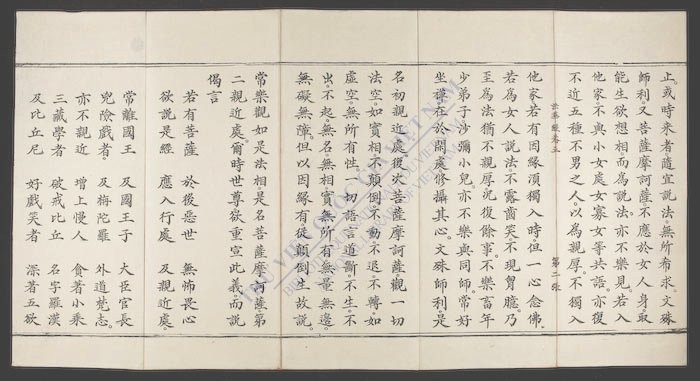 止。或時來者隨宜說法。無所希求。文殊
師利又菩薩摩訶薩不應於女人身取
能生欲想相而為說法亦不樂見若入
他家。不與小女處女寡女等共語。亦復
不近五種不男之人。以為親厚。不獨入
法華經卷五 第二張
他家若有因緣須獨入時但一心念佛
若為女人說法不露齒笑不現胷臆。乃
至為法猶不親厚況復餘事。不樂畜年
少弟子沙彌小兒。亦不樂與同師常好
坐禪在於閑處修攝其心。文殊師利。是
名初親近處復次菩薩摩訶薩觀一切
法空。如實相不顛倒不動。不退不轉。如
虛空。無所有性一切語言道斷不生。不
出。不起。無名無相實無所有無量無邊。
無礙無障。但以因緣有從顛倒生故說。
常樂觀如是法相是名菩薩摩訶薩。第
二親近處。爾時世尊欲重宣此義。而說
偈言
若有菩薩 於後惡世 無怖畏心
欲說是經 應入行處 及親近處。
常離國王 及國王子 大臣官長
兇險戲者。 及栴陀羅 外道梵志。
亦不親近 增上慢人 貪著小乘
三藏學者 破戒比丘 名字羅漢
及比丘尼 好戲笑者 深著五欲
THƯ VIỆN QUỐC GIA VIỆT NAM
BIBLIOTHÈQUE NATIONALE DU VIETNAM
NATIONAL LIBRARY OF VIETNAM